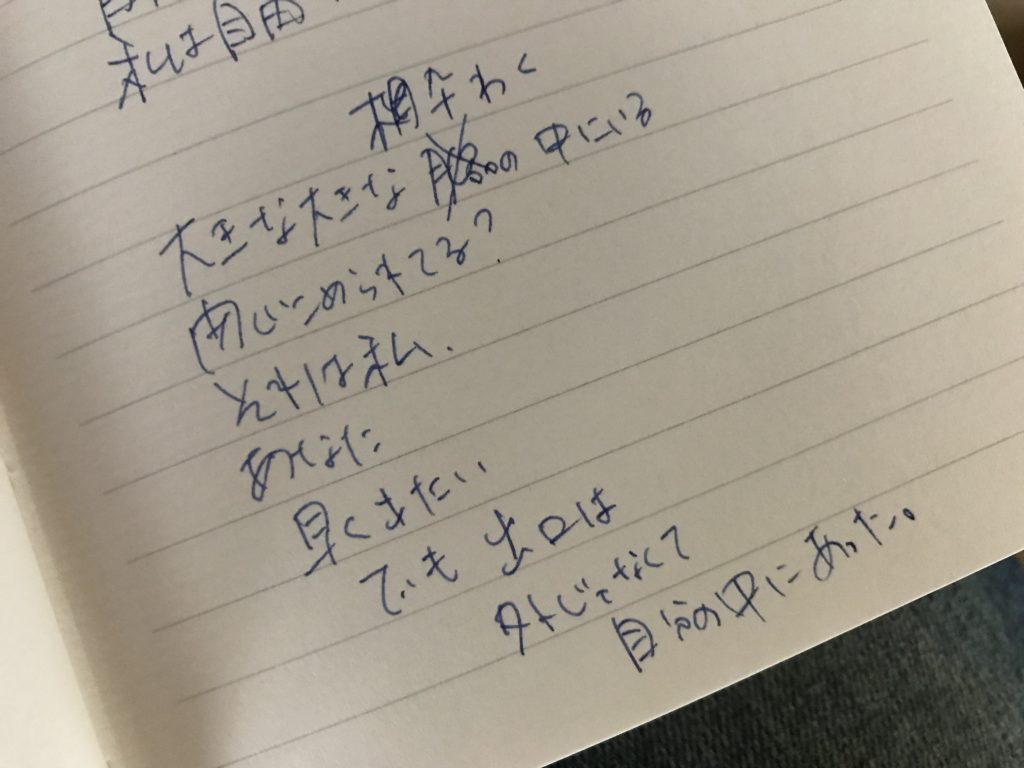 私は自由
わく
大きな大きな の中にいる
閉じこめられてる?
それは私.
あなた
早く 
でも 出口は
外じゃなくて
自分の中にあった。